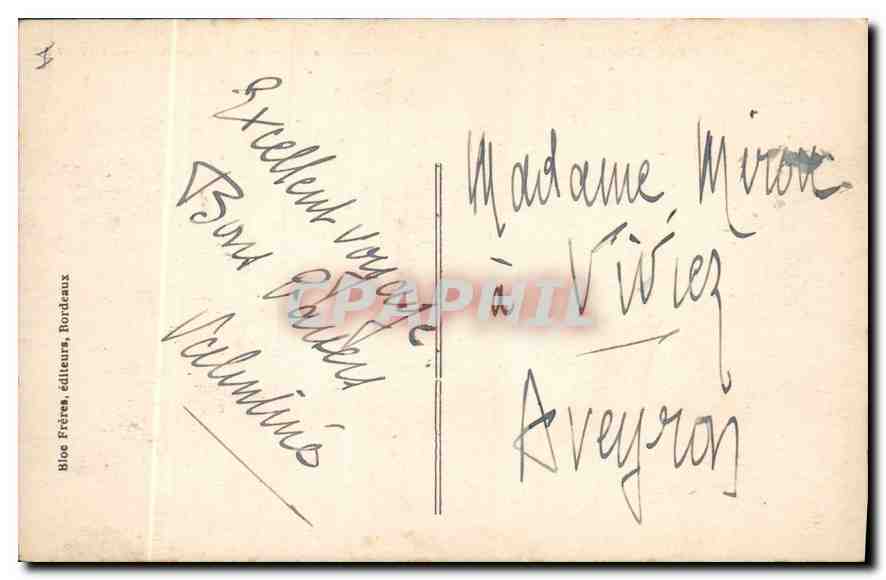 Excellent voyage
Bons baisers
Valentine
Madame Miron
à Viviez
Aveyron
Bloc Frères, éditeurs, Bordeaux
CPAPHIL